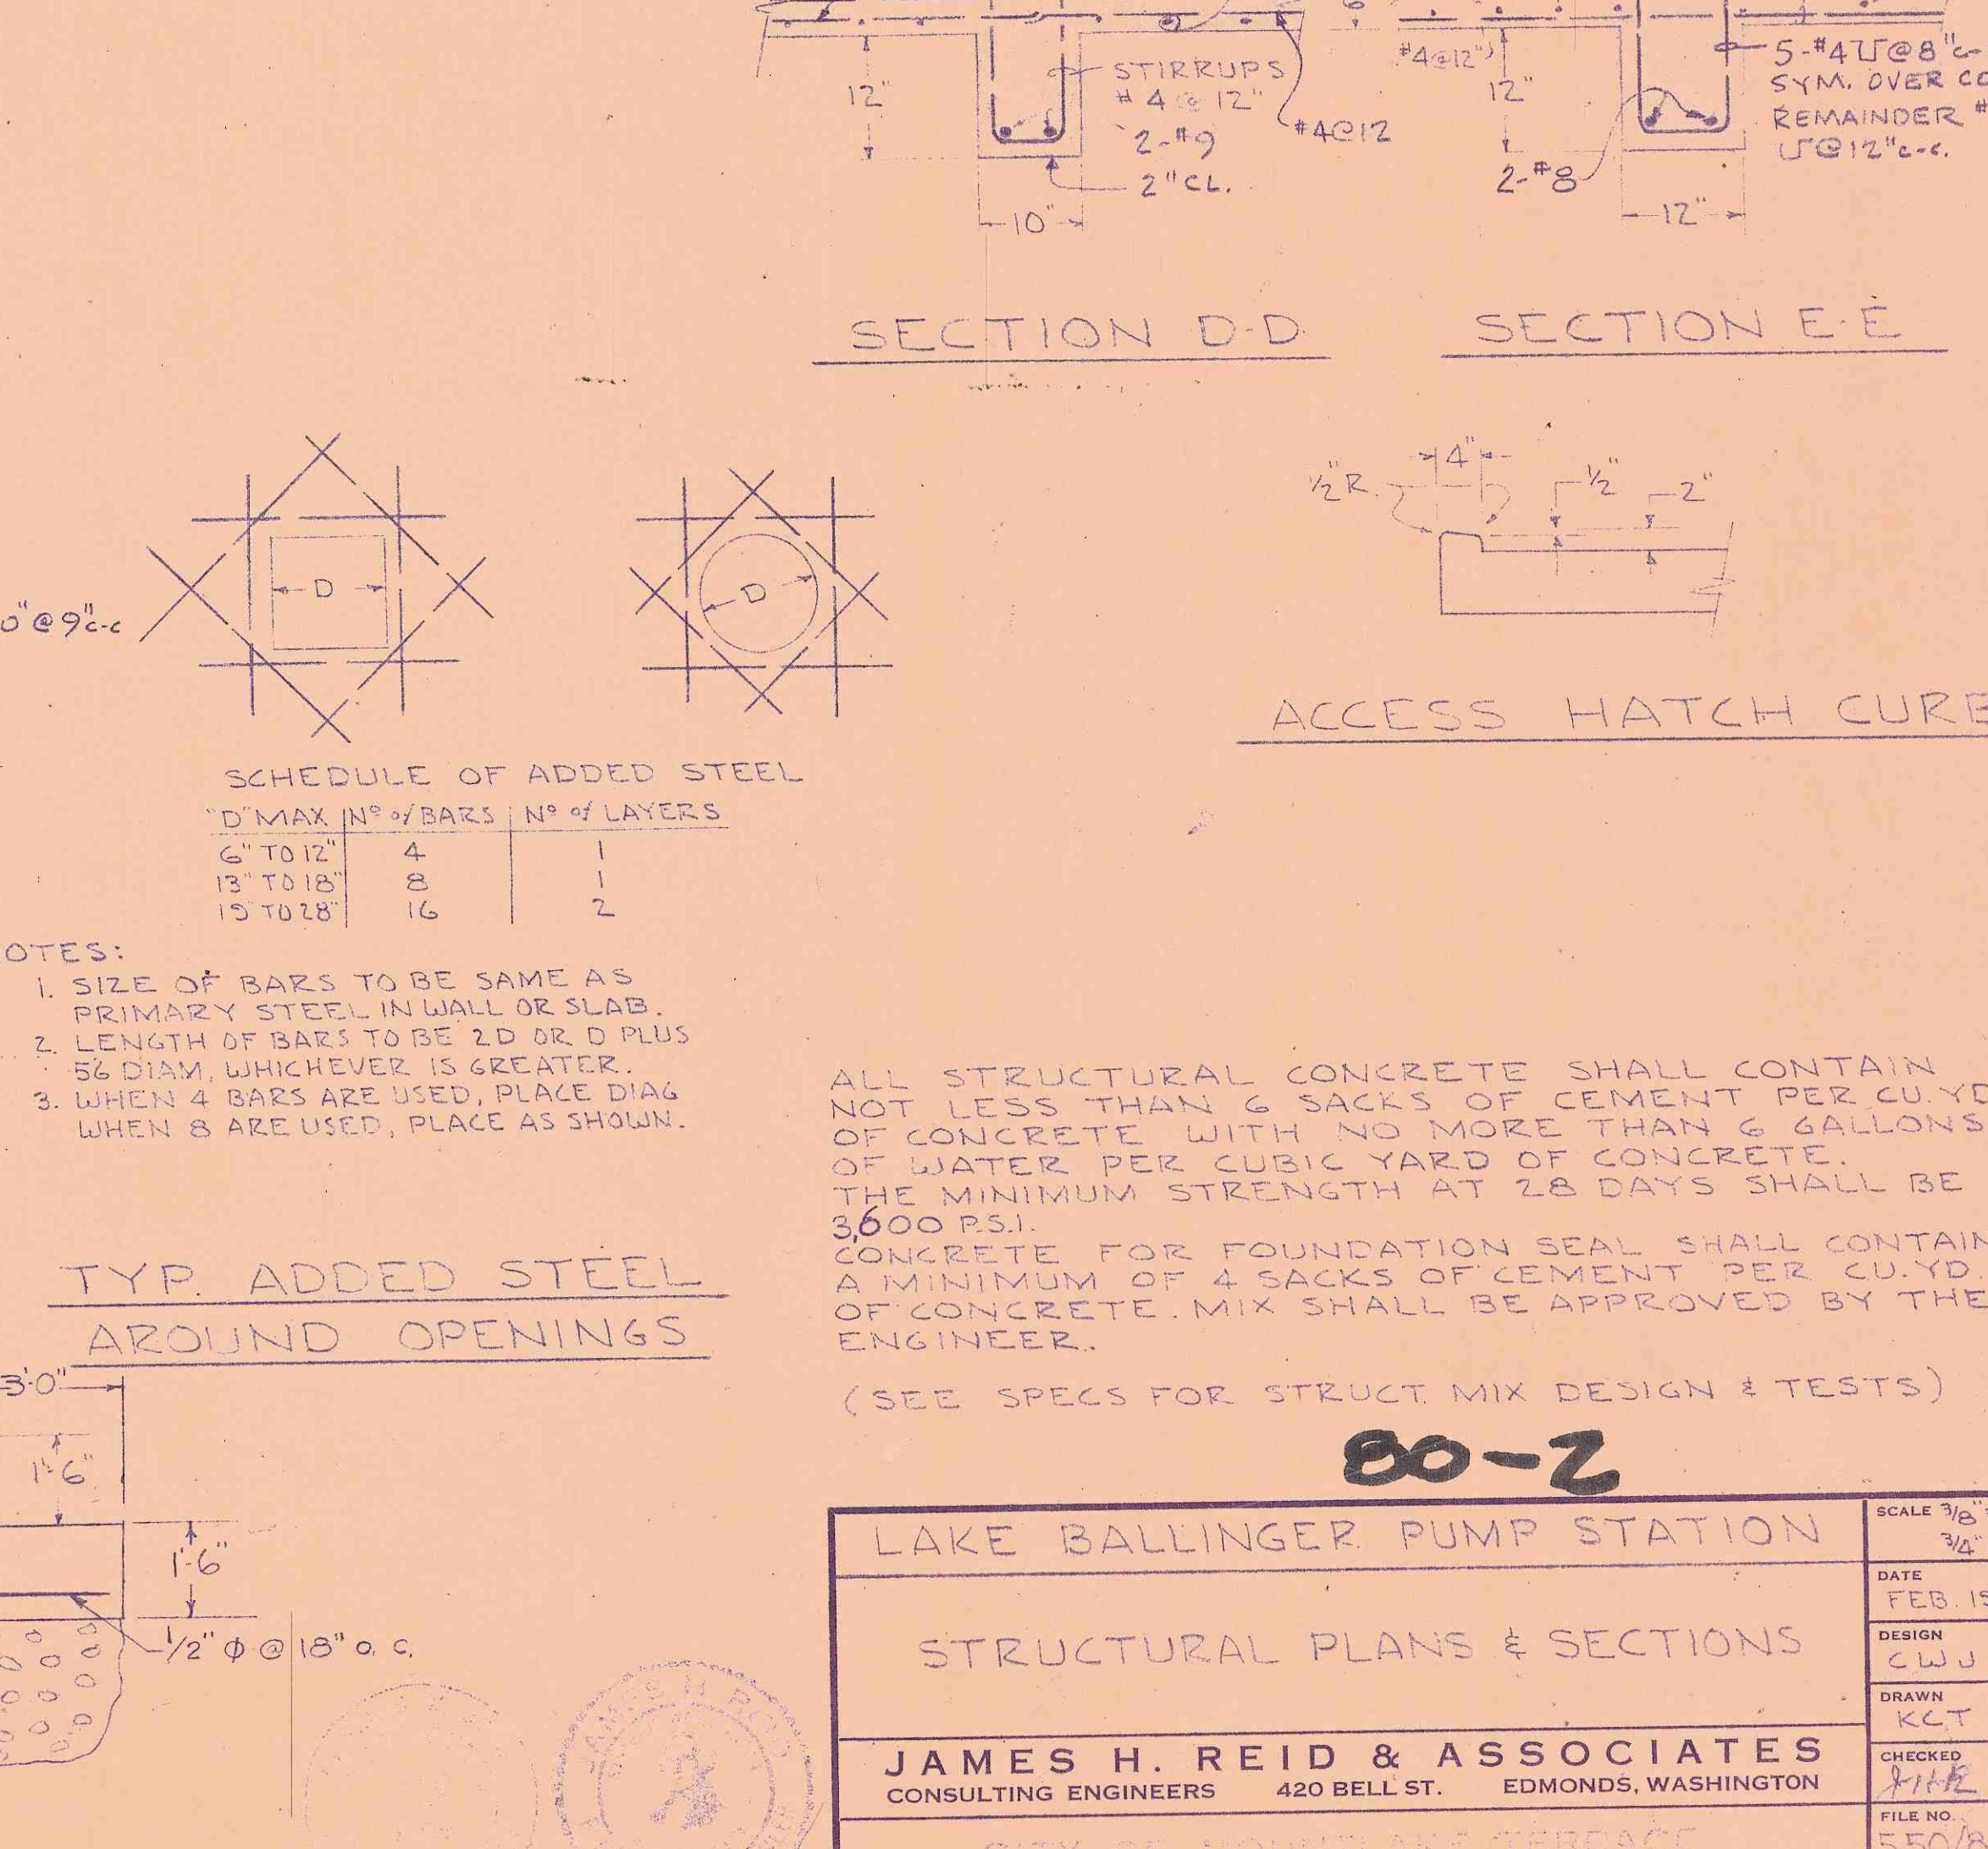 12"
STIRRUPS
# 4 @ 12"
2-#9
2" CL.
#4@12
10"
#4@12"
12"
2-#8
5-#4 @8"c-
SYM. OVER
REMAINDER #
@12"c-c.
12"
SECTION D-D
SECTION E-E
0"@9"c-c
D
D
½"R.
4"
½"
2"
ACCESS HATCH CURB
SCHEDULE OF ADDED STEEL
"D" MAX Nº of BARS Nº of LAYERS
6" TO 12" 4 1
13" TO 18" 8 1
19" TO 28" 16 2
OTES:
1. SIZE OF BARS TO BE SAME AS
PRIMARY STEEL IN WALL OR SLAB.
2. LENGTH OF BARS TO BE 2D OR D PLUS
56 DIAM, WHICHEVER IS GREATER.
3. WHEN 4 BARS ARE USED, PLACE DIAG
WHEN 8 ARE USED, PLACE AS SHOWN.
TYP. ADDED STEEL
AROUND OPENINGS
ALL STRUCTURAL CONCRETE SHALL CONTAIN
NOT LESS THAN 6 SACKS OF CEMENT PER CU.YD
OF CONCRETE WITH NO MORE THAN 6 GALLONS
OF WATER PER CUBIC YARD OF CONCRETE.
THE MINIMUM STRENGTH AT 28 DAYS SHALL BE
3,600 P.S.I.
CONCRETE FOR FOUNDATION SEAL SHALL CONTAIN
A MINIMUM OF 4 SACKS OF CEMENT PER CU.YD.
OF CONCRETE. MIX SHALL BE APPROVED BY THE
ENGINEER.
(SEE SPECS FOR STRUCT. MIX DESIGN & TESTS)
3'-0"
1'-6"
1'-6"
1/2" ϕ @ 18" O. C.
80-2
LAKE BALLINGER PUMP STATION
STRUCTURAL PLANS & SECTIONS
JAMES H. REID & ASSOCIATES
CONSULTING ENGINEERS 420 BELL ST. EDMONDS, WASHINGTON
CITY OF MOUNTLAKE TERRACE
SCALE 3/8"
3/4"
DATE
FEB. 19
DESIGN
CWJ
DRAWN
KCT
CHECKED
JHR
FILE NO.
550/8